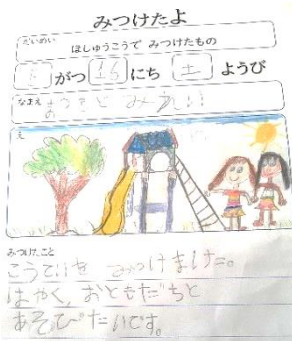 みつけたよ
だいめい
ほしゅうこうで みつけたもの
がつ 16 にち 土 ようび
なまえ
え
みつけたこと
こうていを みつけました。
はやく、おともだちと
あそびたいです。